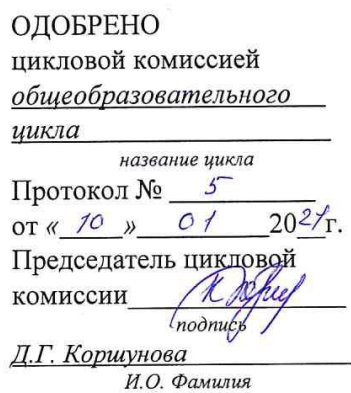 ОДОБРЕНО
цикловой комиссией
общеобразовательного
цикла
название цикла
Протокол № 5
от « 10 » 01 2021г.
Председатель цикловой
комиссии
подпись
Д.Г. Коршунова
И.О. Фамилия